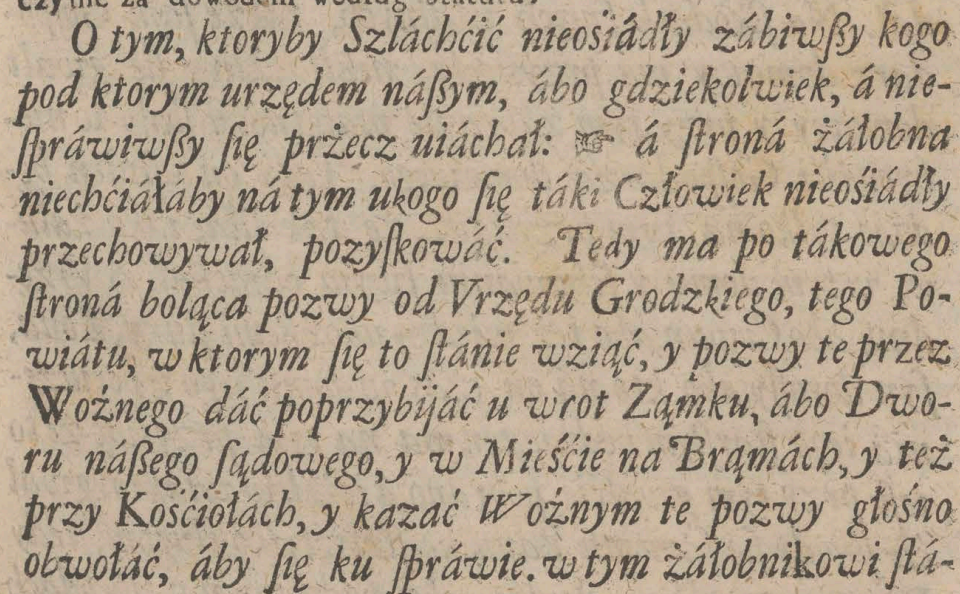 O tym, ktoryby Szláchćić nieośiádły zábiwſßy kogo
pod ktorym urzędem náßym, ábo gdziekolwiek, á nie-
ſpráwiwſßy ſię przecz uiáchał: ☞ á ſtroná żáłobna
niechćiáłáby ná tym ukogo ſię táki Człowiek nieośiádły
przechowywał, pozyſkowáć. Tedy ma po tákowego
ſtroná boląca pozwy od Vrzędu Grodzkiego, tego Po-
wiátu, w ktorym ſię to ſtánie wziąć, y pozwy te przez
Woźnego dáć poprzybijáć u wrot Ząmku, ábo Dwo-
ru náßego ſądowego, y w Mieśćie na Brąmách, y też
przy Kośćiołách, y kazać Woźnym te pozwy głośno
obwołáć, áby ſię ku ſpráwie. w tym żáłobnikowi ſtá-